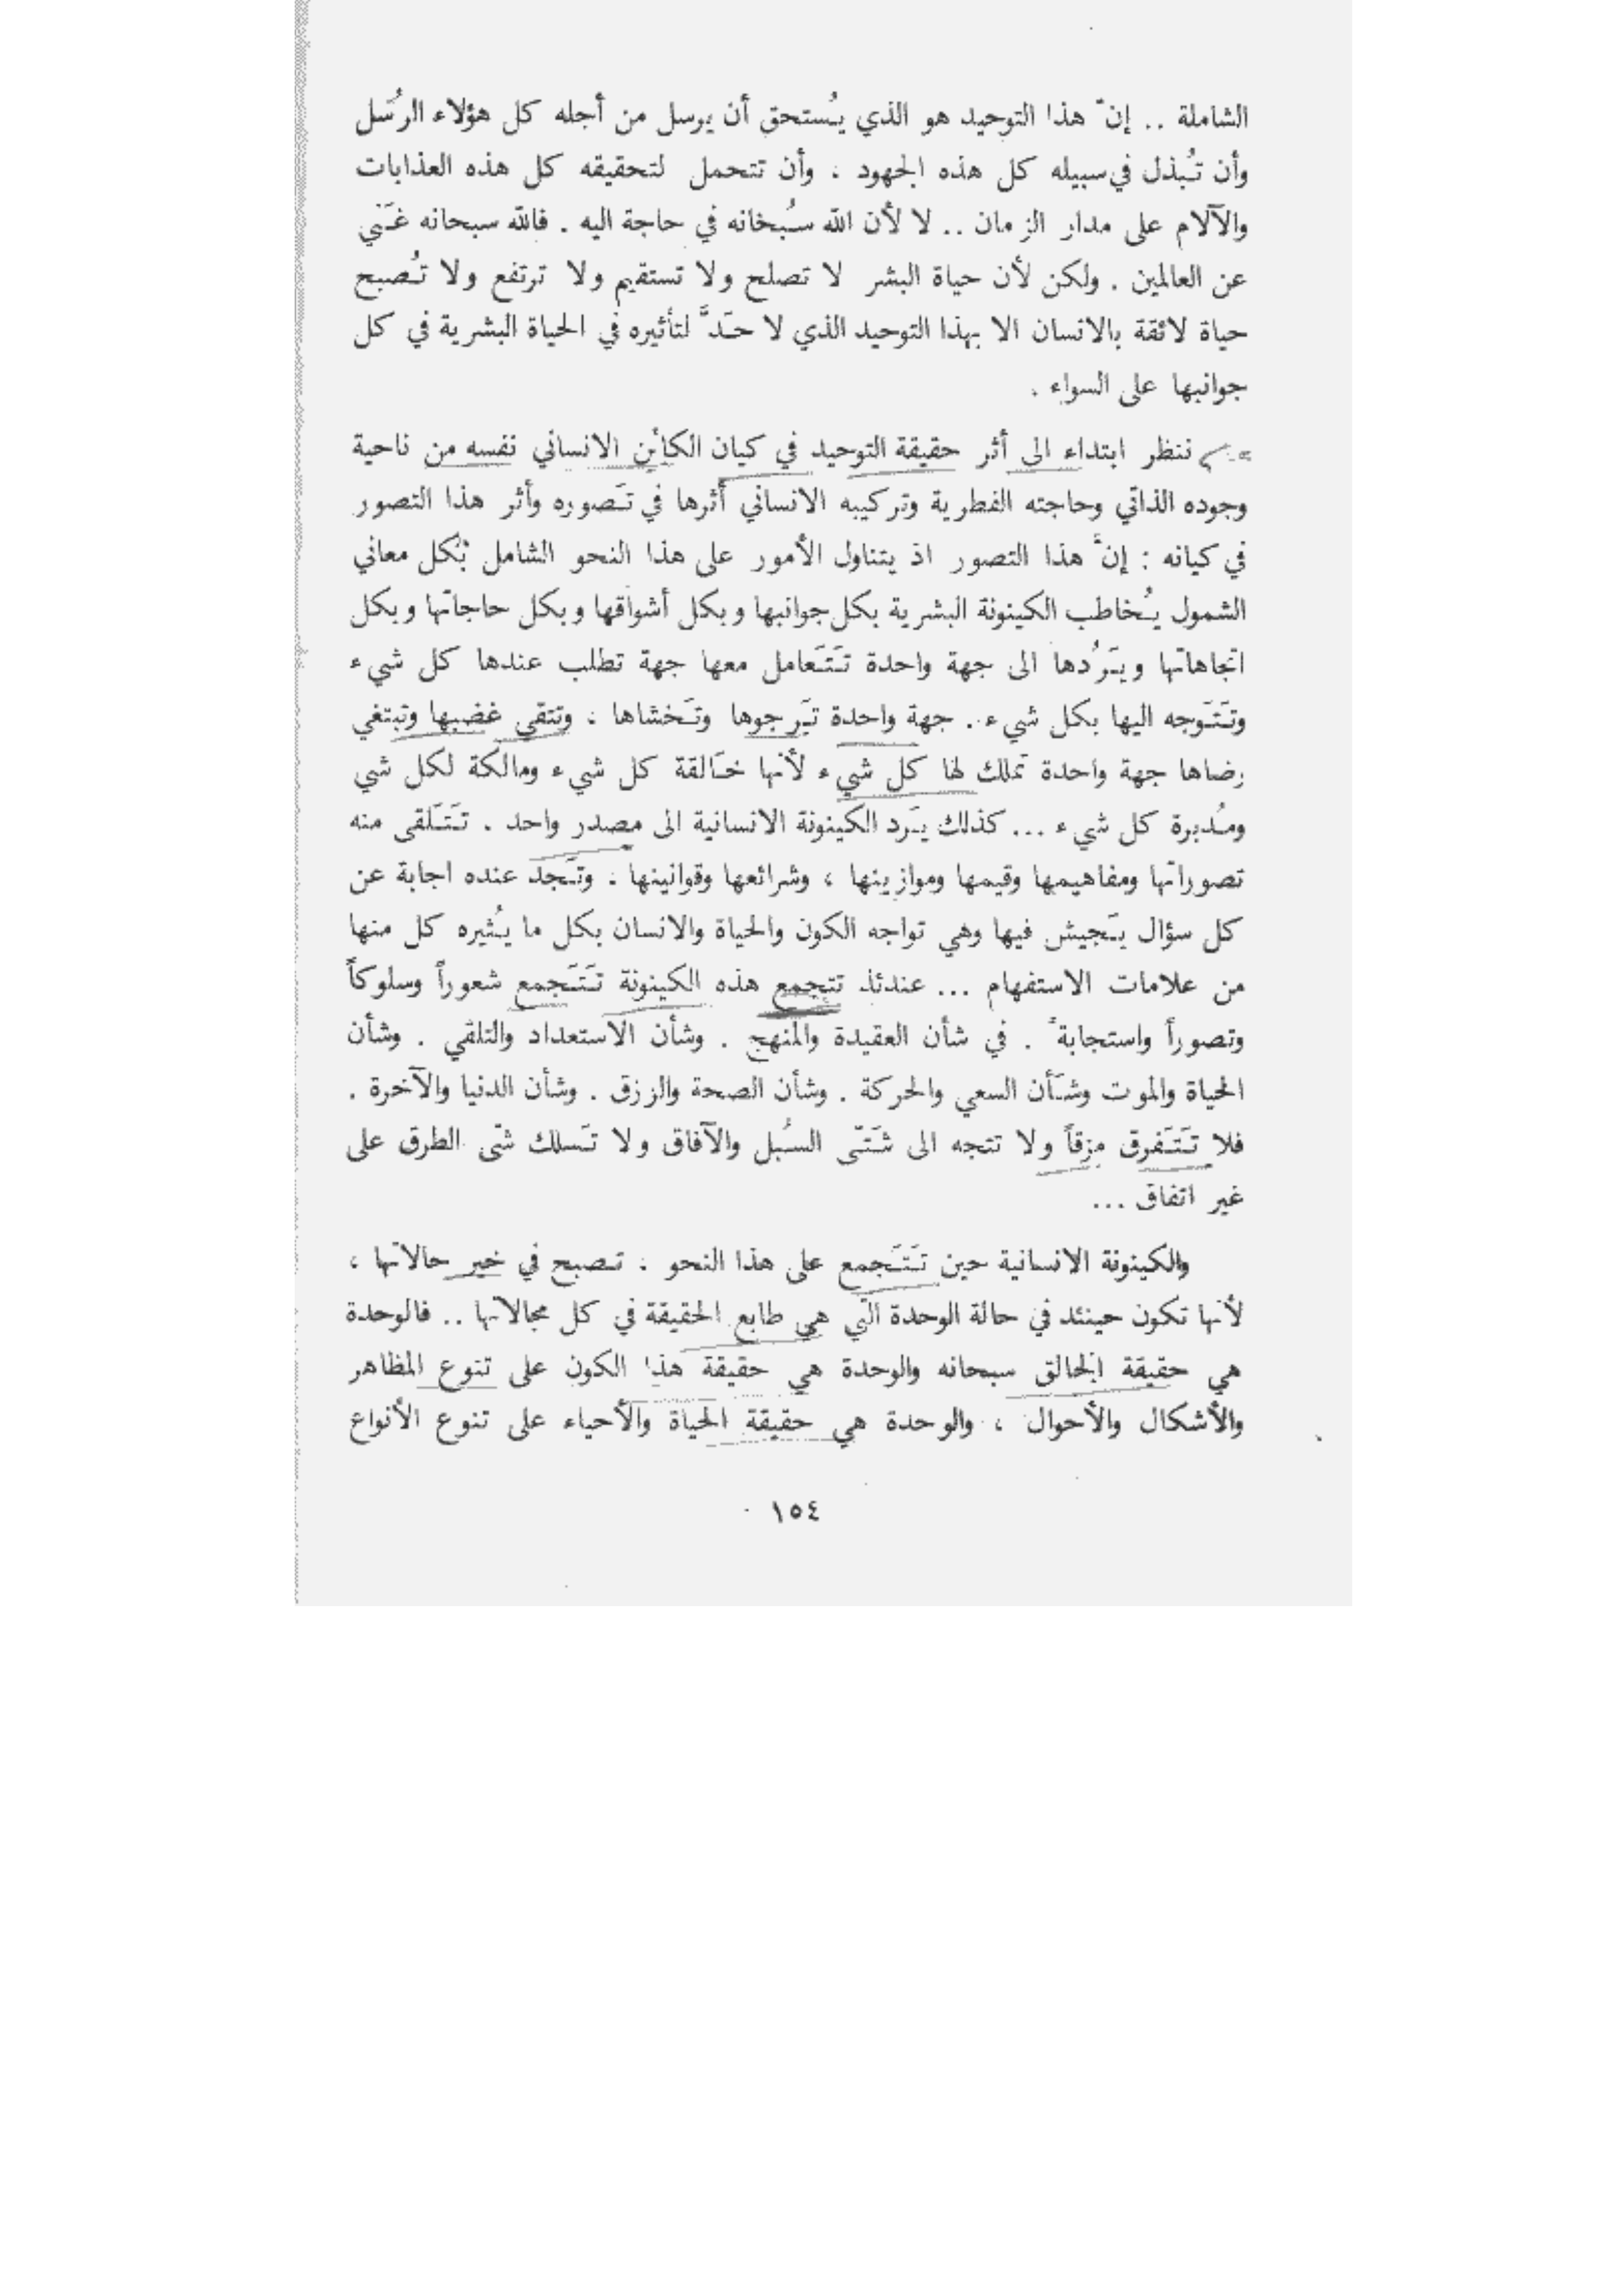 الشاملة .. إنّ هذا التوحيد هو الذي يُستحق أن يرسل من أجله كل هؤلاء الرُسَل
وأن تُبذل في سبيله كل هذه الجهود ، وأن تتحمل لتحقيقه كل هذه العذابات
والآلام على مدار الزمان .. لا لأن الله سُبخانه في حاجة اليه . فالله سبحانه غَني
عن العالمين . ولكن لأن حياة البشر لا تصلح ولا تستقيم ولا ترتفع ولا تُصبح
حياة لائقة بالانسان الا بهذا التوحيد الذي لا حَدَّ لتأثيره في الحياة البشرية في كل
جوانبها على السواء .
ننظر ابتداء الى أثر حقيقة التوحيد في كيان الكائن الانساني نفسه من ناحية
وجوده الذاتي وحاجته الفطرية وتركيبه الانساني أثرها في تَصوره وأثر هذا التصور
في كيانه : إنَّ هذا التصور اذ يتناول الأمور على هذا النحو الشامل بُكل معاني
الشمول يُخاطب الكينونة البشرية بكل جوانبها وبكل أشواقها وبكل حاجاتها وبكل
اتجاهاتها ويَرُدها الى جهة واحدة تَتَعامل معها جهة تطلب عندها كل شيء
وتَتَوجه اليها بكل شيء .. جهة واحدة تَرجوها وتَخشاها ، وتتقي غضبها وتبتغي
رضاها جهة واحدة تملك لها كل شيء لأنها خَالقة كل شيء ومالكة لكل شي
ومُدبرة كل شيء ... كذلك يَرد الكينونة الانسانية الى مصدر واحد . تَتَلقى منه
تصوراتها ومفاهيمها وقيمها وموازينها ، وشرائعها وقوانينها . وتَجد عنده اجابة عن
كل سؤال يَجيش فيها وهي تواجه الكون والحياة والانسان بكل ما يُثيره كل منها
من علامات الاستفهام ... عندئذ تتجمع هذه الكينونة تَتَجمع شعوراً وسلوكاً
وتصوراً واستجابةً . في شأن العقيدة والمنهج . وشأن الاستعداد والتلقي . وشأن
الحياة والموت وشَأن السعي والحركة . وشأن الصحة والرزق . وشأن الدنيا والآخرة .
فلا تَتَفرق مزقاً ولا تتجه الى شَتّى السُبل والآفاق ولا تَسلك شتى الطرق على
غير اتفاق ...
والكينونة الانسانية حين تَتَجمع على هذا النحو . تصبح في خير حالاتها ،
لأنها تكون حينئد في حالة الوحدة التي هي طابع الحقيقة في كل مجالاتها .. فالوحدة
هي حقيقة الخالق سبحانه والوحدة هي حقيقة هذا الكون على تنوع المظاهر
والأشكال والأحوال ، والوحدة هي حقيقة الحياة والأحياء على تنوع الأنواع
١٥٤